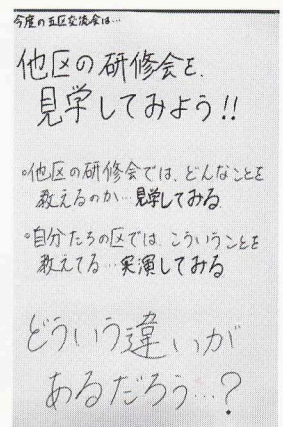 今度の五区交流会は…
他区の研修会を、
見学してみよう!!
•他区の研修会では、どんなことを
教えるのか…見学してみる
•自分たちの区では、こういうことを
教えてる…実演してみる
どういう違いが
あるだろう…?